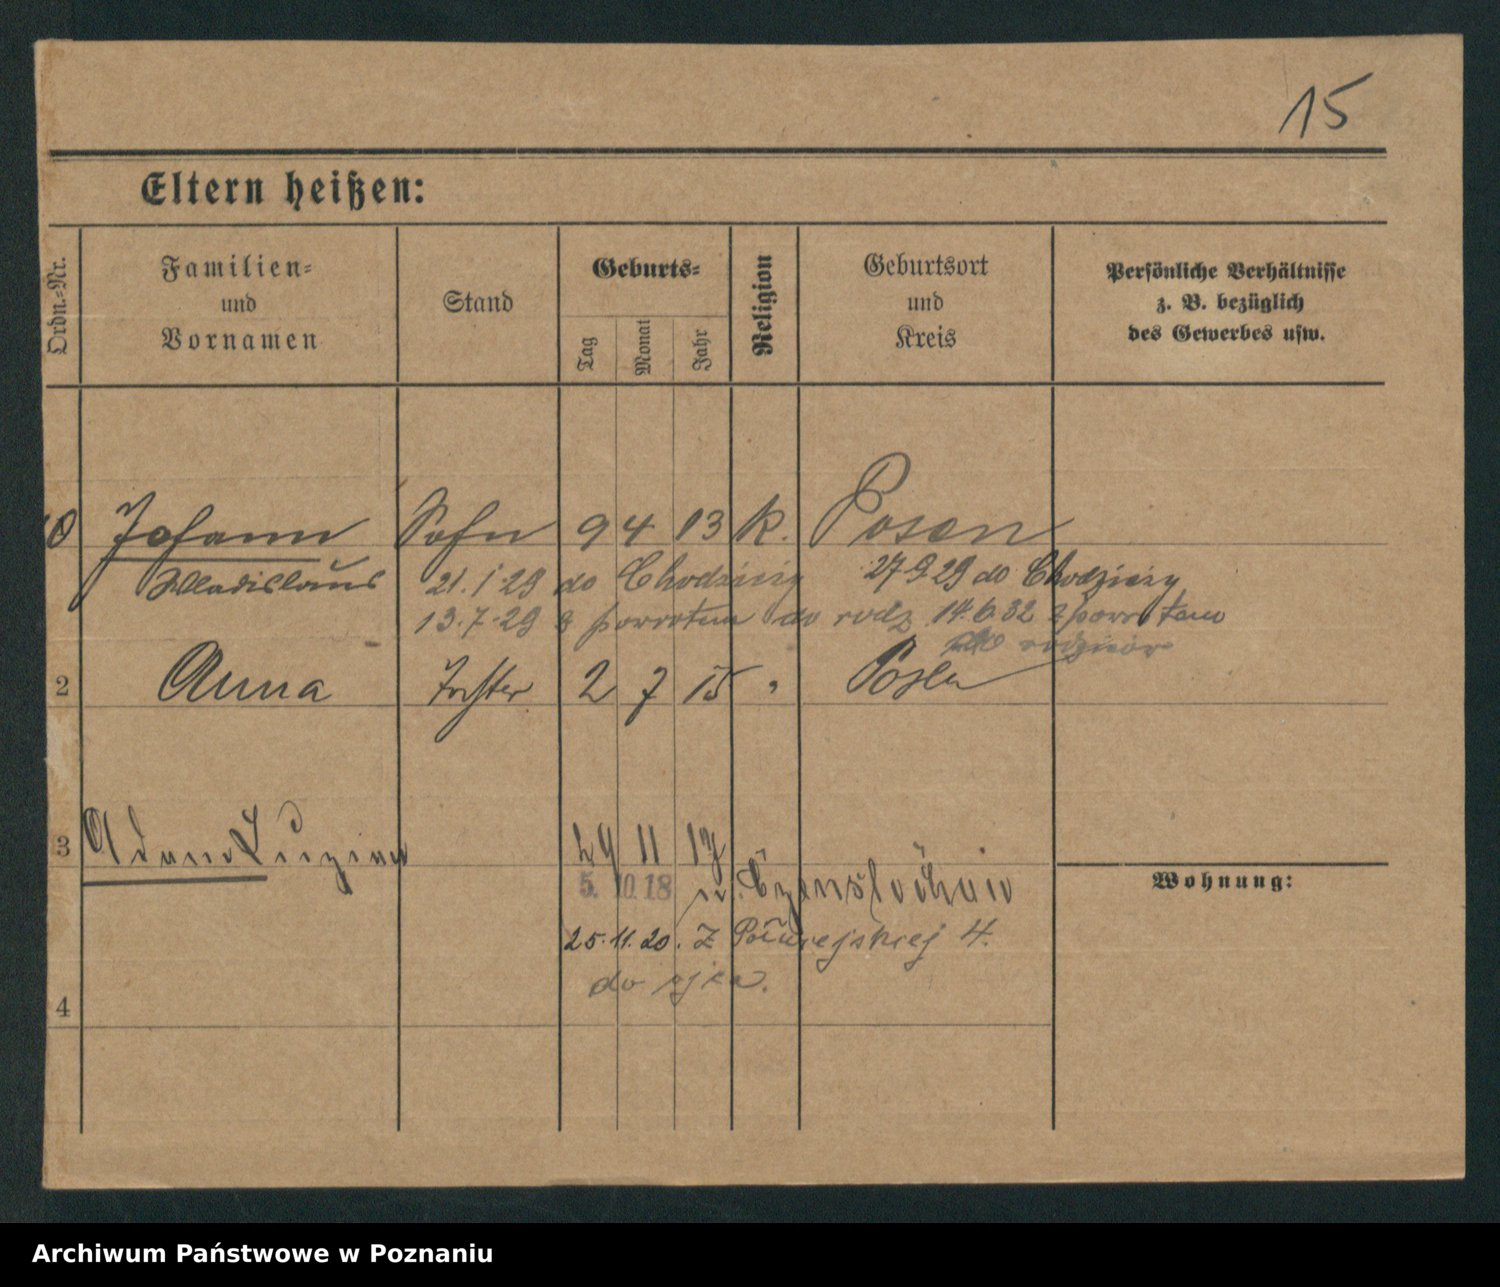 15
Eltern heißen:
Ordn.-Nr.
Familien- und Vornamen
Stand
Geburts-
Tag
Monat
Jahr
Religion
Geburtsort und Kreis
Persönliche Verhältnisse z. B. bezüglich des Gewerbes usw.
Johann Sohn 9 4 13 k. Posen
Wladislaus 21.1.29 do Chodzieży 27.9.29 do Chodzieży
13.7.29 z powrotem do rodz 14.6.32 z powrotem
do rodziców
2 Anna Tochter 2 7 15 " Posen
3 Adam Luzian 29 11 17
5. 10. 18 n. Czenstochau
Wohnung:
25.11.20. z 4.
do ojca.
4
Archiwum Państwowe w Poznaniu